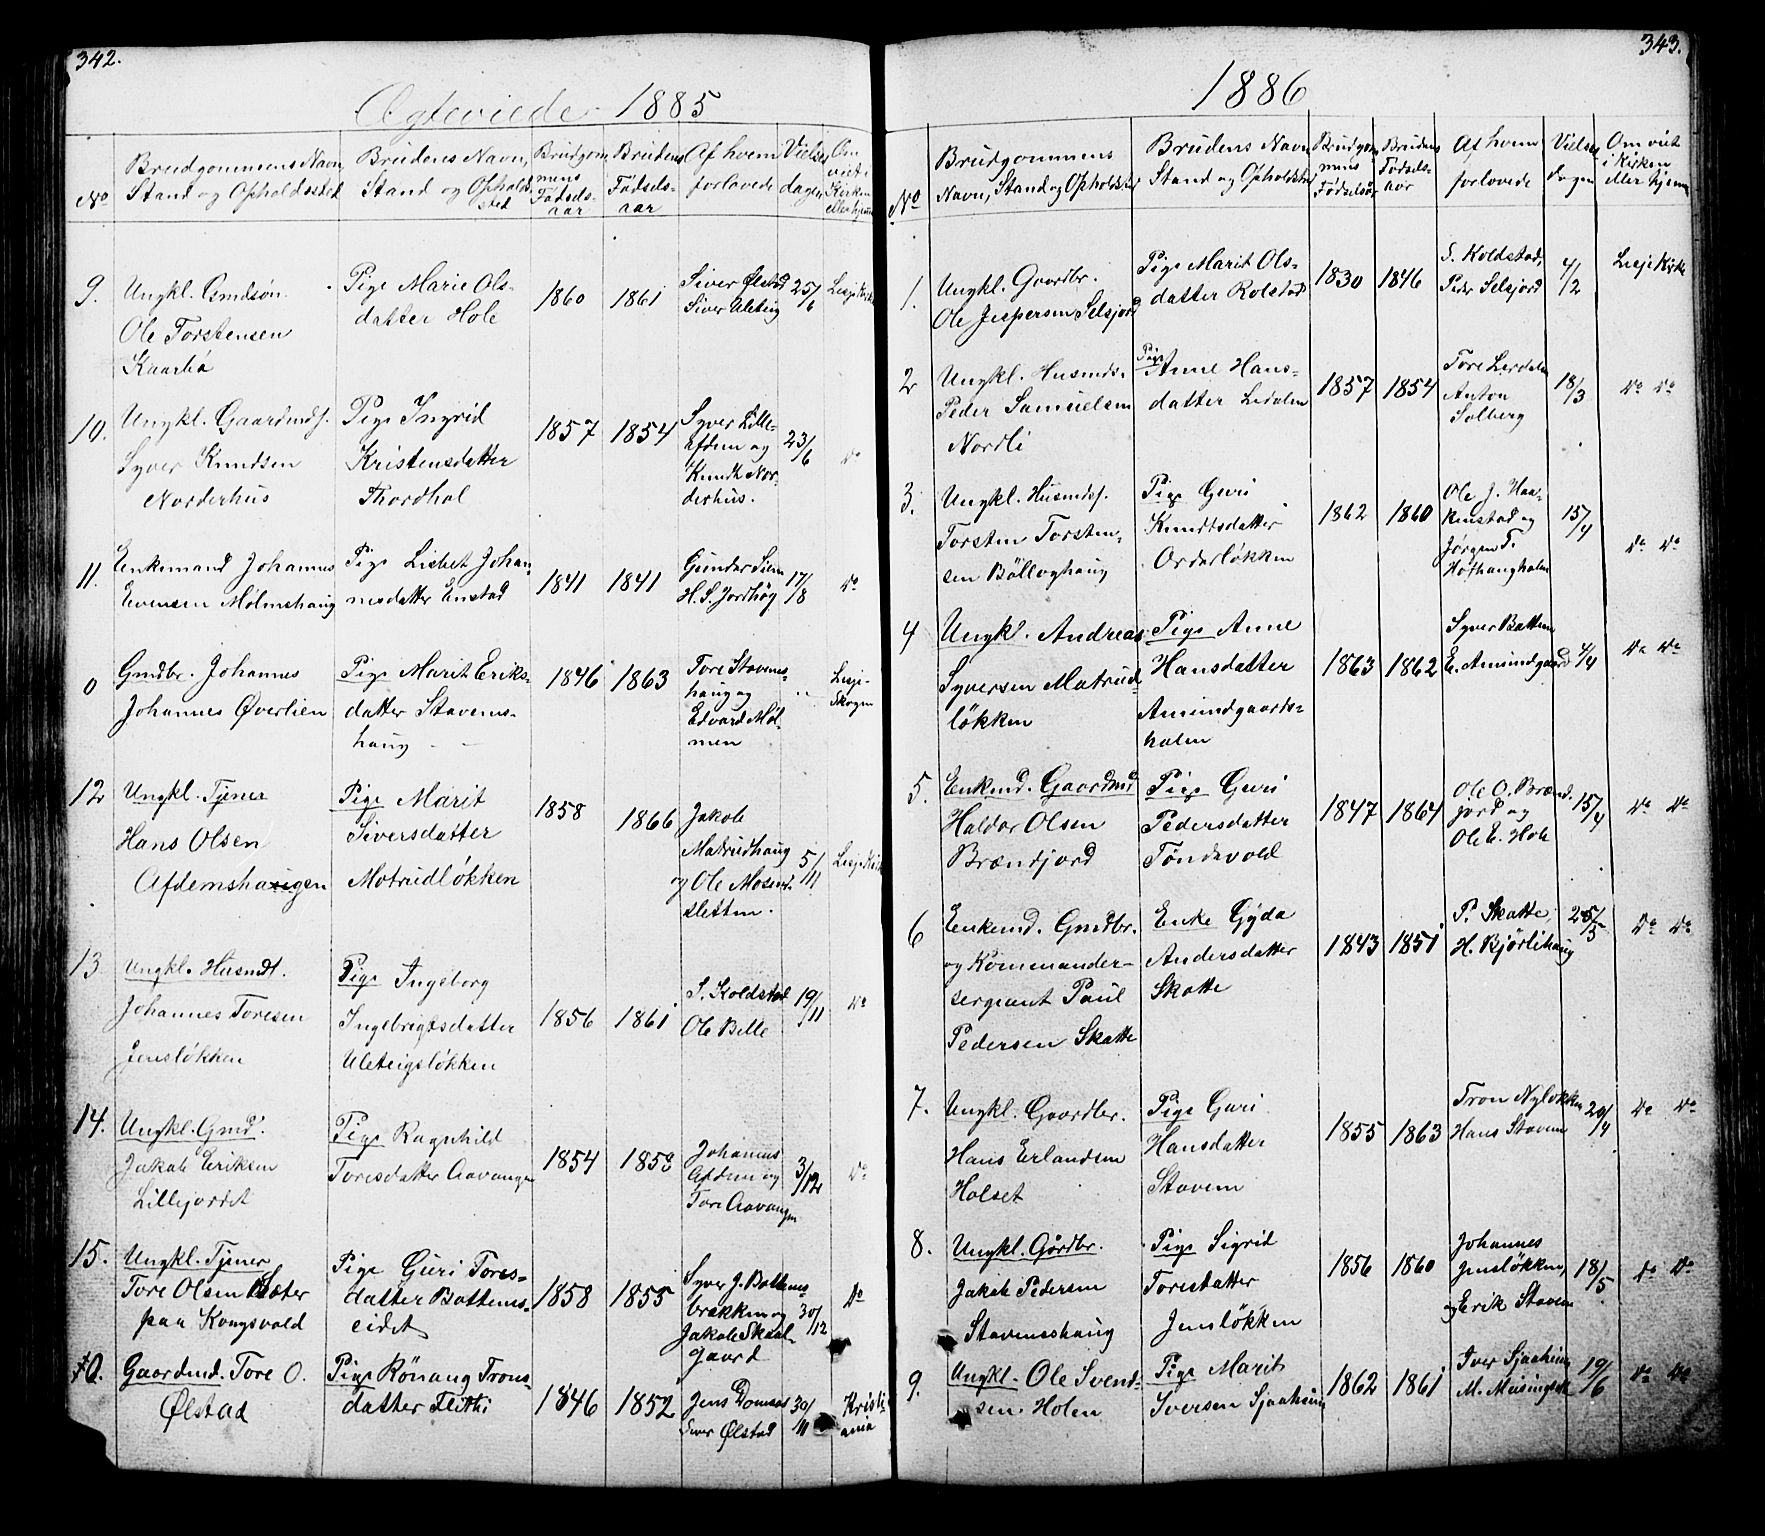 342.
Ægteviede 1885
No
Brudgommens Navn,
Stand og Opholdssted
Brudens Navn,
Stand og Opholds
sted
Brudgom
mens
Fødsels-
aar
Brudens
Fødsels-
aar
Af hvem
forlovede
Vielses
dagen
Om
viet i
Kirken
eller hjem
9.
Ungkl. Gmdsøn
Ole Torstensen
Kaarbø
Pige Marie Ols-
datter Hole
1860
1861
Siver Ølstad
Siver Uleteig
25/6
Lesje Kirke
10.
Ungkl. Gaardmds.
Syver Knudsen
Norderhus
Pige Ingrid
Kristensdatter
Thordhol
1857
1854
Syver Lille-
afdem og
Knudt Nor-
derhus.
23/6
do
11.
Enkemand Johannes
Evensen Mølmshaug
Pige Lisbet Johan-
nesdatter Enstad
1841
1841
Gunder Siem
H. S. Jordhøy
17/8
do
0
Gmdbr. Johannes
Johannes Øverlien
Pige Marit Eriks-
datter Stavems-
haug
1846
1863
Tore Stavems-
haug og
Edvard Møl-
men
Lesje-
Skogen
12
Ungkl. Tjener
Hans Olsen
Afdemshaugen
Pige Marit
Siversdatter
Motrudløkken
1858
1866
Jakob
Matrudhaug
og Ole Mosend-
sletten.
5/11
Lesje Kirk
13
Ungkl. Husmdt.
Johannes Toresen
Jensløkken
Pige Ingeborg
Ingebrigtsdatter
Uleteigsløkken
1856
1861
S. Koldstad
Ole Belle
19/11
do
14.
Ungkl. Gmd.
Jakob Eriksen
Lillejordet
Pige Ragnhild
Toresdatter Aavangen
1854
1859
Johannes
Afdem og
Tore Aavangen
3/12
do
15.
Ungkl. Tjener
Tore Olsen Sæter
paa Kongsvold
Pige Guri Tores-
datter Bottems-
eidet
1858
1855
Syver J. Bottems-
brækken og
Jakob Skaal-
gaard
30/12
do
0.
Gaardmd. Tore O.
Ølstad
Pige Rönaug Trons-
datter Flithi
1846
1852
Jens Domaas
Siver Ølstad
30/11
Kristi-
ania
343.
1886
No
Brudgommens
Navn, Stand og Opholdsted
Brudens Navn
Stand og Opholdsted
Brudgom
mens
Fødselsaar
Brudens
Fødsels-
aar
Af hvem
forlovede
Vielses
dagen
Om viet
i Kirken
eller hjem
1.
Ungkl. Gaardbr.
Ole Jespersen Selsjord
Pige Marit Ols-
datter Rolstad
1830
1846
S. Koldstad,
Peder Selsjord
4/2
Lesje Kirke
2
Ungkl. Husmds.
Peder Samuelsen
Nordli
Pige
Anne Hans-
datter Lerdalen
1857
1854
Tore Lerdalen
Anton
Solberg
18/3
do do
3.
Ungkl. Husmds.
Torsten Torsten-
sen Bölloghaug
Pige Guri
Knudtsdatter
Orderløkken
1862
1860
Ole J. Haa-
kenstad og
Jørgen T.
Hofhangholm
15/4
do do
4
Ungk. Andreas
Syversen Matrud-
løkken
Pige Anne
Hansdatter
Amundgaards-
holen
1863
1862
Syver Bottem
E. Amundgaard
4/4
do do
5.
Enkemd. Gaardmd
Haldor Olsen
Brændjord
Pige Guri
Pedersdatter
Töndevold
1847
1864
Ole O. Brænd-
jord og
Ole E. Hole
15/4
do do
6
Enkemd. Gmdbr.
og Kommander-
sergeant Paul
Pedersen Skotte
Enke Gyda
Andersdatter
Skotte
1843
1851
P. Skotte,
H. Bjørlihaug
25/5
do do
7.
Ungkl. Gaardbr.
Hans Erlandsen
Holset
Pige Guri
Hansdatter
Stavem
1855
1863
Tron Nyløkken
Hans Stavem
20/4
do do
8.
Ungkl. Gårdbr.
Jakob Pedersen
Stavemshaug
Pige Sigrid
Toresdatter
Jensløkken
1856
1860
Johannes
Jensløkken,
og Erik Stavem
18/5
do do
9.
Ungkl. Ole Svend-
sen Holen
Pige Marit
Iversen Sjaaheim
1862
1861
Iver Sjaaheim
19/6
do do